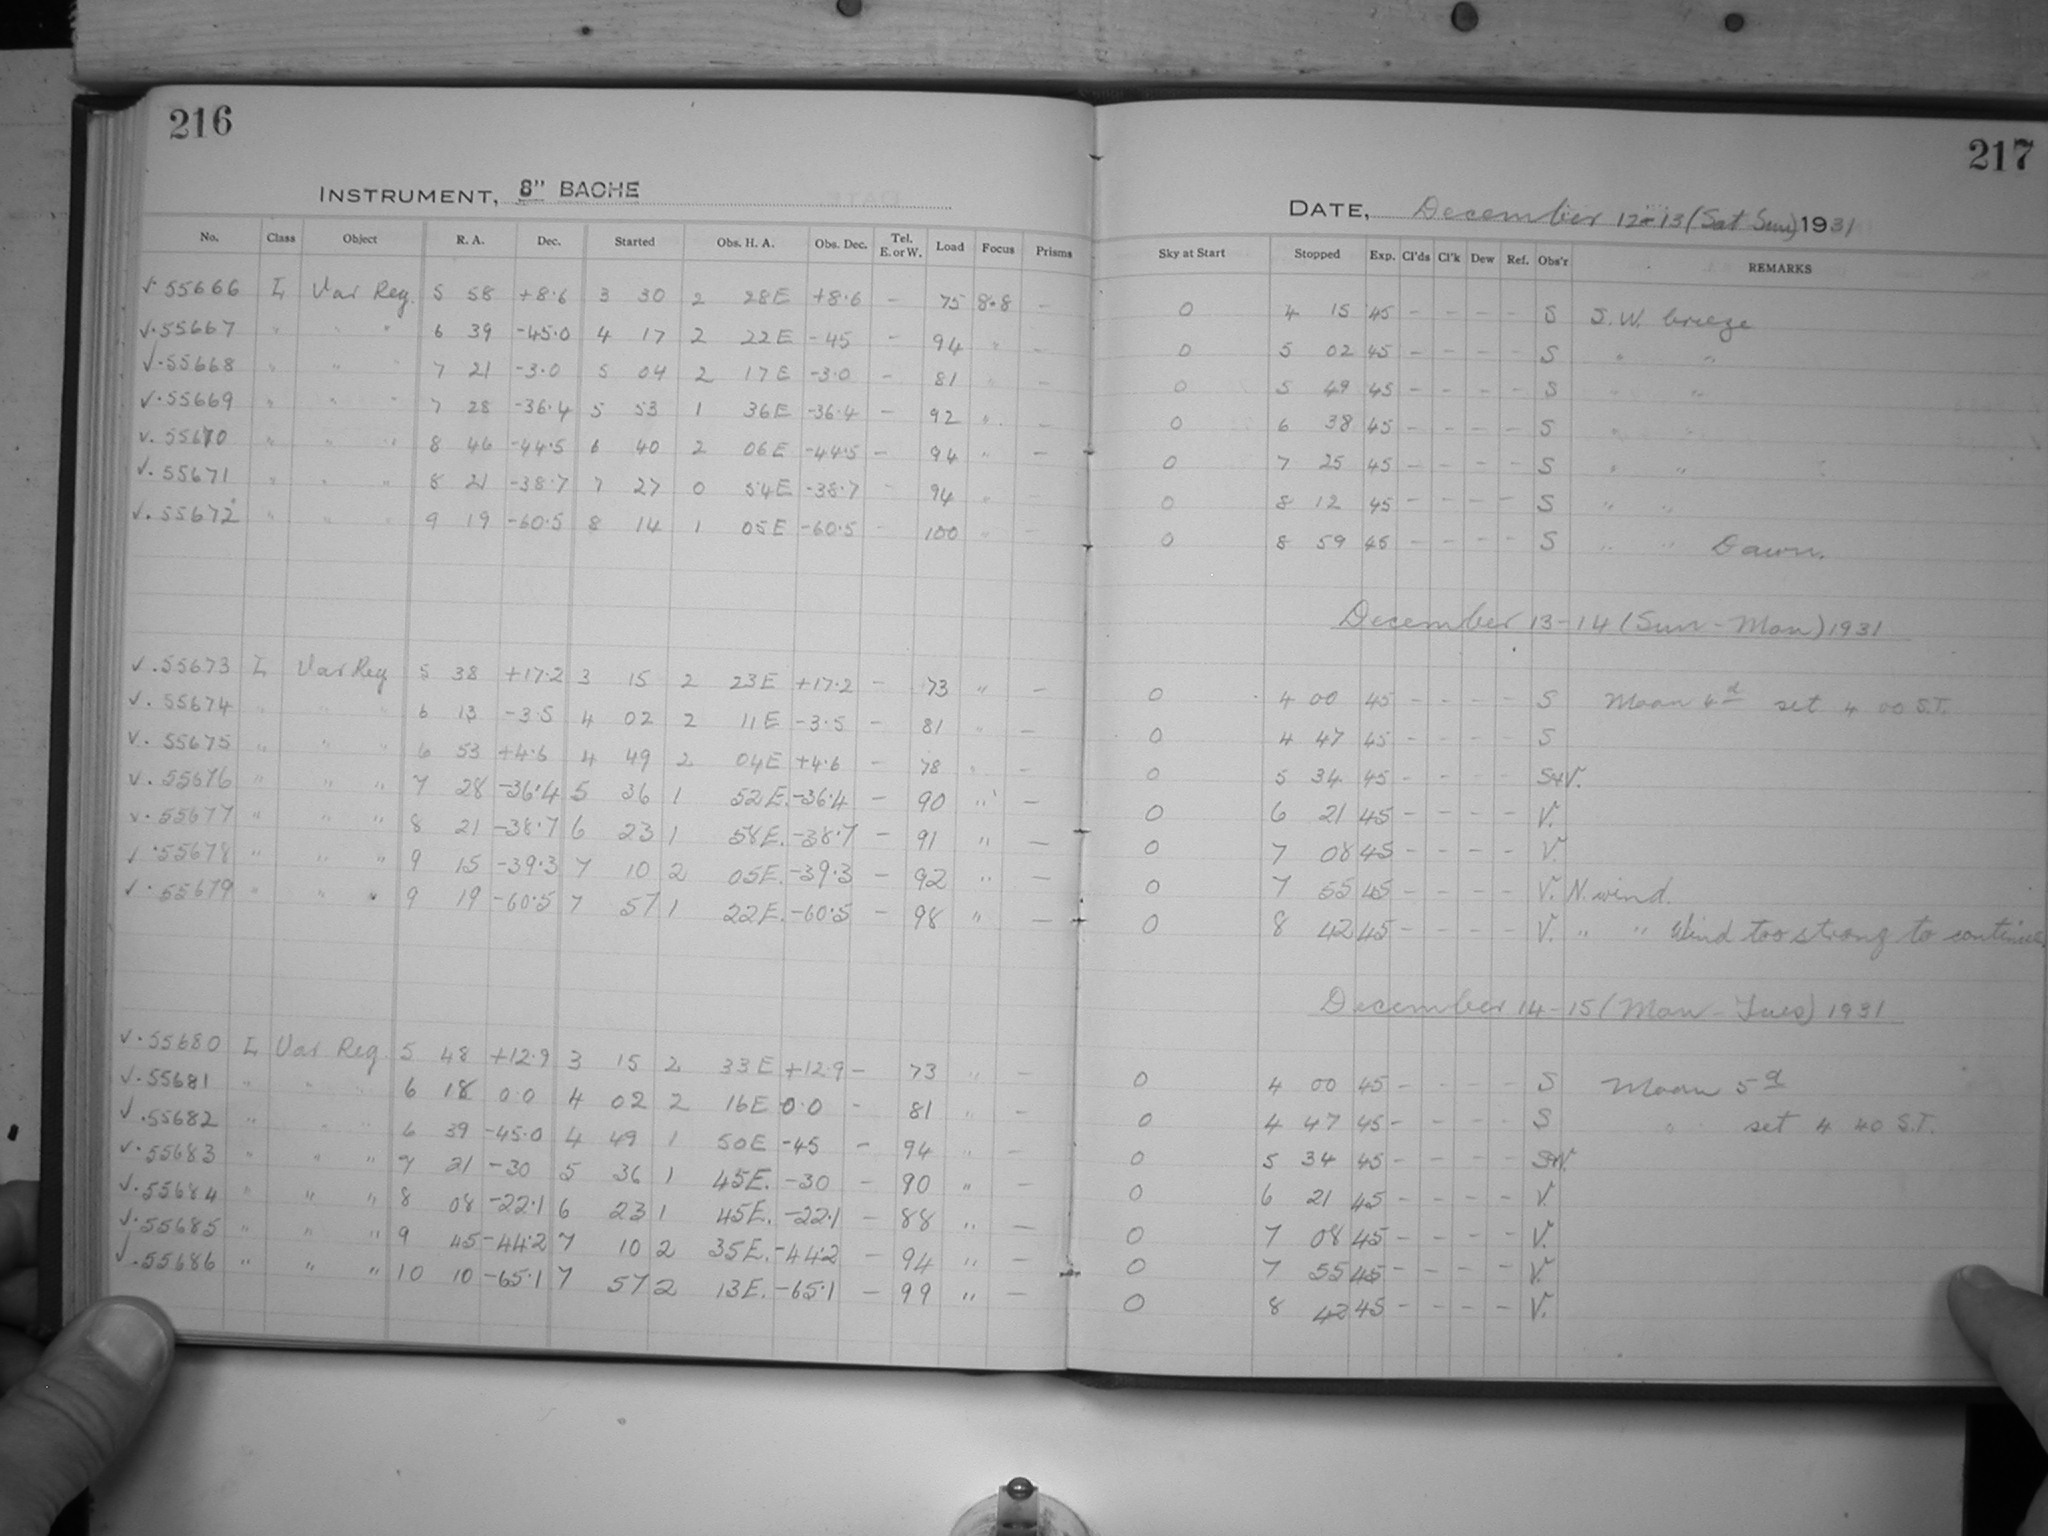 216
INSTRUMENT, 8" BACHE
No. Class Object R. A. Dec. Started Obs. H. A. Obs. Dec. Tel. E. or W. Load Focus Prisms
√.55666 L Var Reg. 5 58 +8.6 3 30 2 28E +8.6 - 75 8.8 -
√.55667 " " " 6 39 -45.0 4 17 2 22E -45 - 94 " -
√.55668 " " " 7 21 -3.0 5 04 2 17E -3.0 - 81 " -
√.55669 " " " 7 28 -36.4 5 53 1 36E -36.4 - 92 " -
√.55670 " " " 8 46 -44.5 6 40 2 06E -44.5 - 94 " -
√.55671 " " " 8 21 -38.7 7 27 0 54E -38.7 - 94 " -
√.55672 " " " 9 19 -60.5 8 14 1 05E -60.5 - 100 " -
√.55673 L Var Reg 5 38 +17.2 3 15 2 23E +17.2 - 73 " -
√.55674 " " " 6 13 -3.5 4 02 2 11E -3.5 - 81 " -
√.55675 " " " 6 53 +4.6 4 49 2 04E +4.6 - 78 " -
√.55676 " " " 7 28 -36.4 5 36 1 52E. -36.4 - 90 " -
√.55677 " " " 8 21 -38.7 6 23 1 58E. -38.7 - 91 " -
√.55678 " " " 9 15 -39.3 7 10 2 05E. -39.3 - 92 " -
√.55679 " " " 9 19 -60.5 7 57 1 22E. -60.5 - 98 " -
√.55680 L Var Reg. 5 48 +12.9 3 15 2 33E +12.9 - 73 " -
√.55681 " " " 6 18 0.0 4 02 2 16E 0.0 - 81 " -
√.55682 " " " 6 39 -45.0 4 49 1 50E -45 - 94 " -
√.55683 " " " 7 21 -30 5 36 1 45E. -30 - 90 " -
√.55684 " " " 8 08 -22.1 6 23 1 45E. -22.1 - 88 " -
√.55685 " " " 9 45 -44.2 7 10 2 35E. -44.2 - 94 " -
√.55686 " " " 10 10 -65.1 7 57 2 13E. -65.1 - 99 " -
217
DATE, December 12-13 (Sat Sun) 1931
Sky at Start Stopped Exp. Cl'ds Cl'k Dew Ref. Obs'r REMARKS
0 4 15 45 - - - - S S.W. breeze
0 5 02 45 - - - - S " "
0 5 49 45 - - - - S " "
0 6 38 45 - - - - S "
0 7 25 45 - - - - S " "
0 8 12 45 - - - - S " "
0 8 59 45 - - - - S " " Dawn.
December 13-14 (Sun - Mon) 1931
0 4 00 45 - - - - S Moon 4d set 4 00 S.T.
0 4 47 45 - - - - S
0 5 34 45 - - - - S+V.
0 6 21 45 - - - - V.
0 7 08 45 - - - - V.
0 7 55 45 - - - - V. N. wind.
0 8 42 45 - - - - V. " " Wind too strong to continue.
December 14-15 (Mon - Tues) 1931
0 4 00 45 - - - - S Moon 5d
0 4 47 45 - - - - S " set 4 40 S.T.
0 5 34 45 - - - - S+V.
0 6 21 45 - - - - V
0 7 08 45 - - - - V.
0 7 55 45 - - - - V.
0 8 42 45 - - - - V.